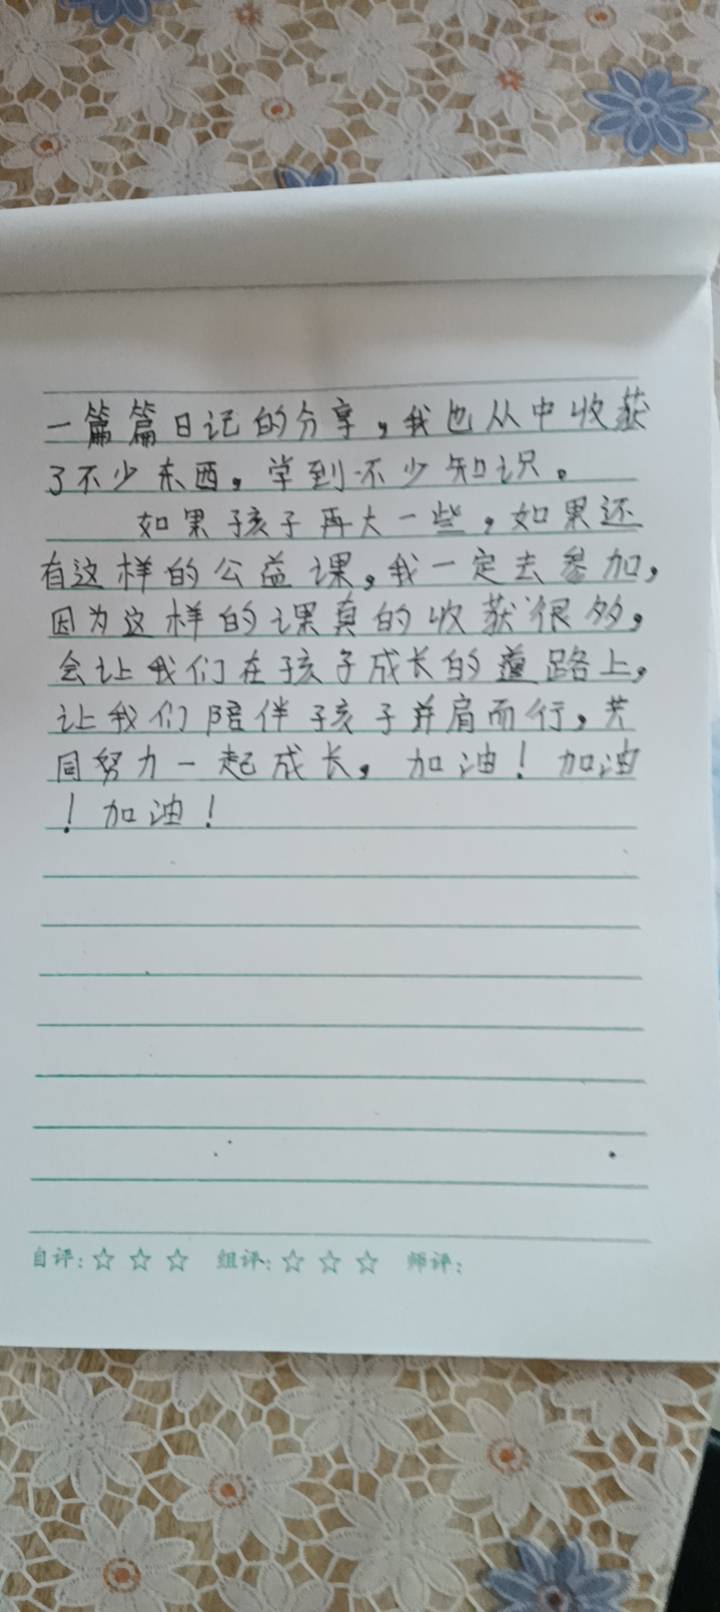 一篇篇日记的分享，我也从中收获
了不少东西。学到不少知识。
如果孩子再大一些，如果还
有这样的公益课，我一定去参加，
因为这样的课真的收获很多，
会让我们在孩子成长的道路上，
让我们陪伴孩子并肩而行，共
同努力一起成长，加油！加油
！加油！
自评：☆ ☆ ☆ 组评：☆ ☆ ☆ 师评：